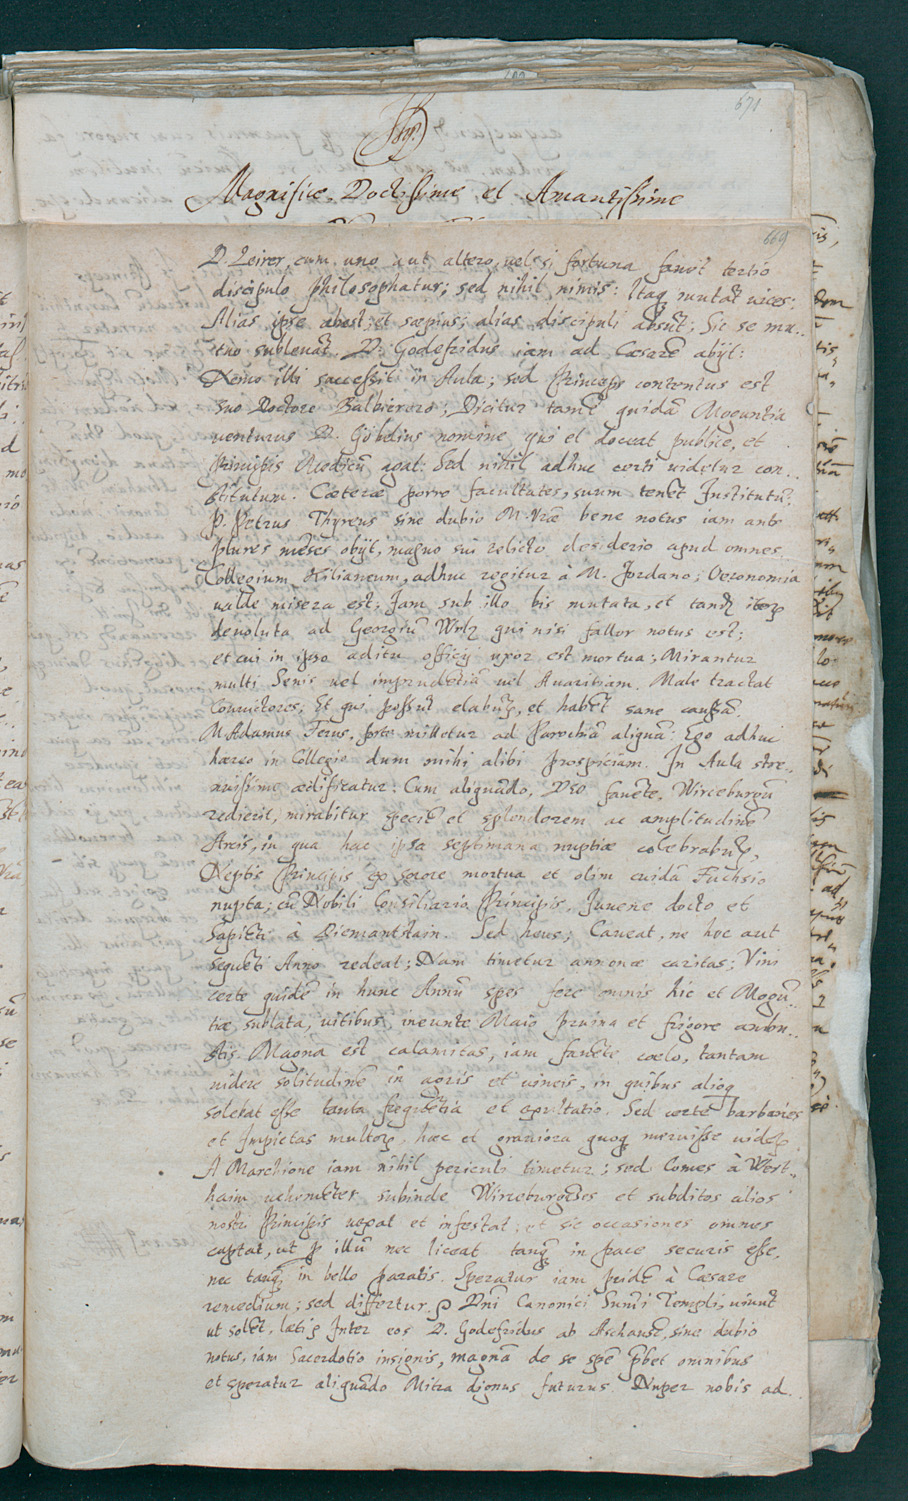 671
Magnifice, Doctissime et Amantissime
669
D. Leirer, cum uno aut altero, vel si fortuna favet tertio
discipulo philosophatur; sed nihil nimis: Itaq mutat vices:
Alias ipse abest, et sæpius; alias discipuli absūt; Sic se mu-
tuo sublevāt. D. Godefridus iam ad Cæsarē abijt:
Nemo illi successit in Aula; sed Princeps contentus est
suo Doctore Balbierero; Dicitur tamē quidā Moguntia
venturus D. Gobelius nomine, qui et doceat publice, et
Principis Medicū agat. Sed nihil adhuc certi videtur con-
stitutum. Cæteræ porro facultates, suum tenēt Institutū.
P. Petrus Thyreus sine dubio M. Vræ bene notus iam ante
plures mēses obijt, magno sui relicto desiderio apud omnes.
Collegium Kilianeum, adhuc regitur à M. Jordano; Oeconomia
valde misera est; Jam sub illo bis mutata, et tandē iterū
devoluta ad Georgiū Wolz qui nisi fallor notus est;
et cui in ipso aditu officij uxor est mortua; Mirantur
multi Senis vel imprudētiā vel Avaritiam. Male tractat
Convictores; Et qui possūt elabunt, et habēt sane caussā.
M. Adamus Ferus, forte mittetur ad Parochiā aliquā. Ego adhuc
hæreo in Collegio dum mihi alibi prospiciam. In Aula stre-
nuissime ædificatur: Cum aliquādo, DEO favēte, Wirceburgū
redierit, mirabitur speciē et splendorem ac amplitudinē
Arcis, in qua hac ipsa septimana nuptiæ celebrabunt,
Neptis Principis ex sorore mortua et olim cuidā Fuchsio
nupta; cū Nobili Consiliario Principis, Juvene docto et
sapiēti à Diemantstain. Sed heus; Caveat, ne hoc aut
sequēti Anno redeat; Nam timetur annonæ caritas; Vini
certe quidē in hunc Annū spes fere omnis hic et Mogū-
tiæ, sublata, vitibus, ineunte Maio pruina et frigore ambu-
stis. Magna est calamitas, iam favēte coelo, tantam
videre solitudinē in agris et vineis, in quibus alioq
solebat esse tanta frequētia et exultatio. Sed certe barbaries
et Impietas multorū, hæc et graviora quoq meruisse videt.
A Marchione iam nihil periculi timetur; sed Comes à Wert-
haim vehemēter subinde Wirceburgēses et subditos alios
nostri Principis vexat et infestat; et sic occasiones omnes
captat, ut p illū nec liceat tanq in pace securis esse,
nec tanq in bello paratis. Speratur iam pridē à Cæsare
remedium; sed differtur. Dni Canonici Sumi Templi, vivūt
ut solēt, læti; Inter eos D. Godefridus ab Aschausē, sine dubio
notus, iam Sacerdotio insignis, magnā de se spē p̄bet omnibus
et speratur aliquādo Mitra dignus futurus. Nuper nobis ad-